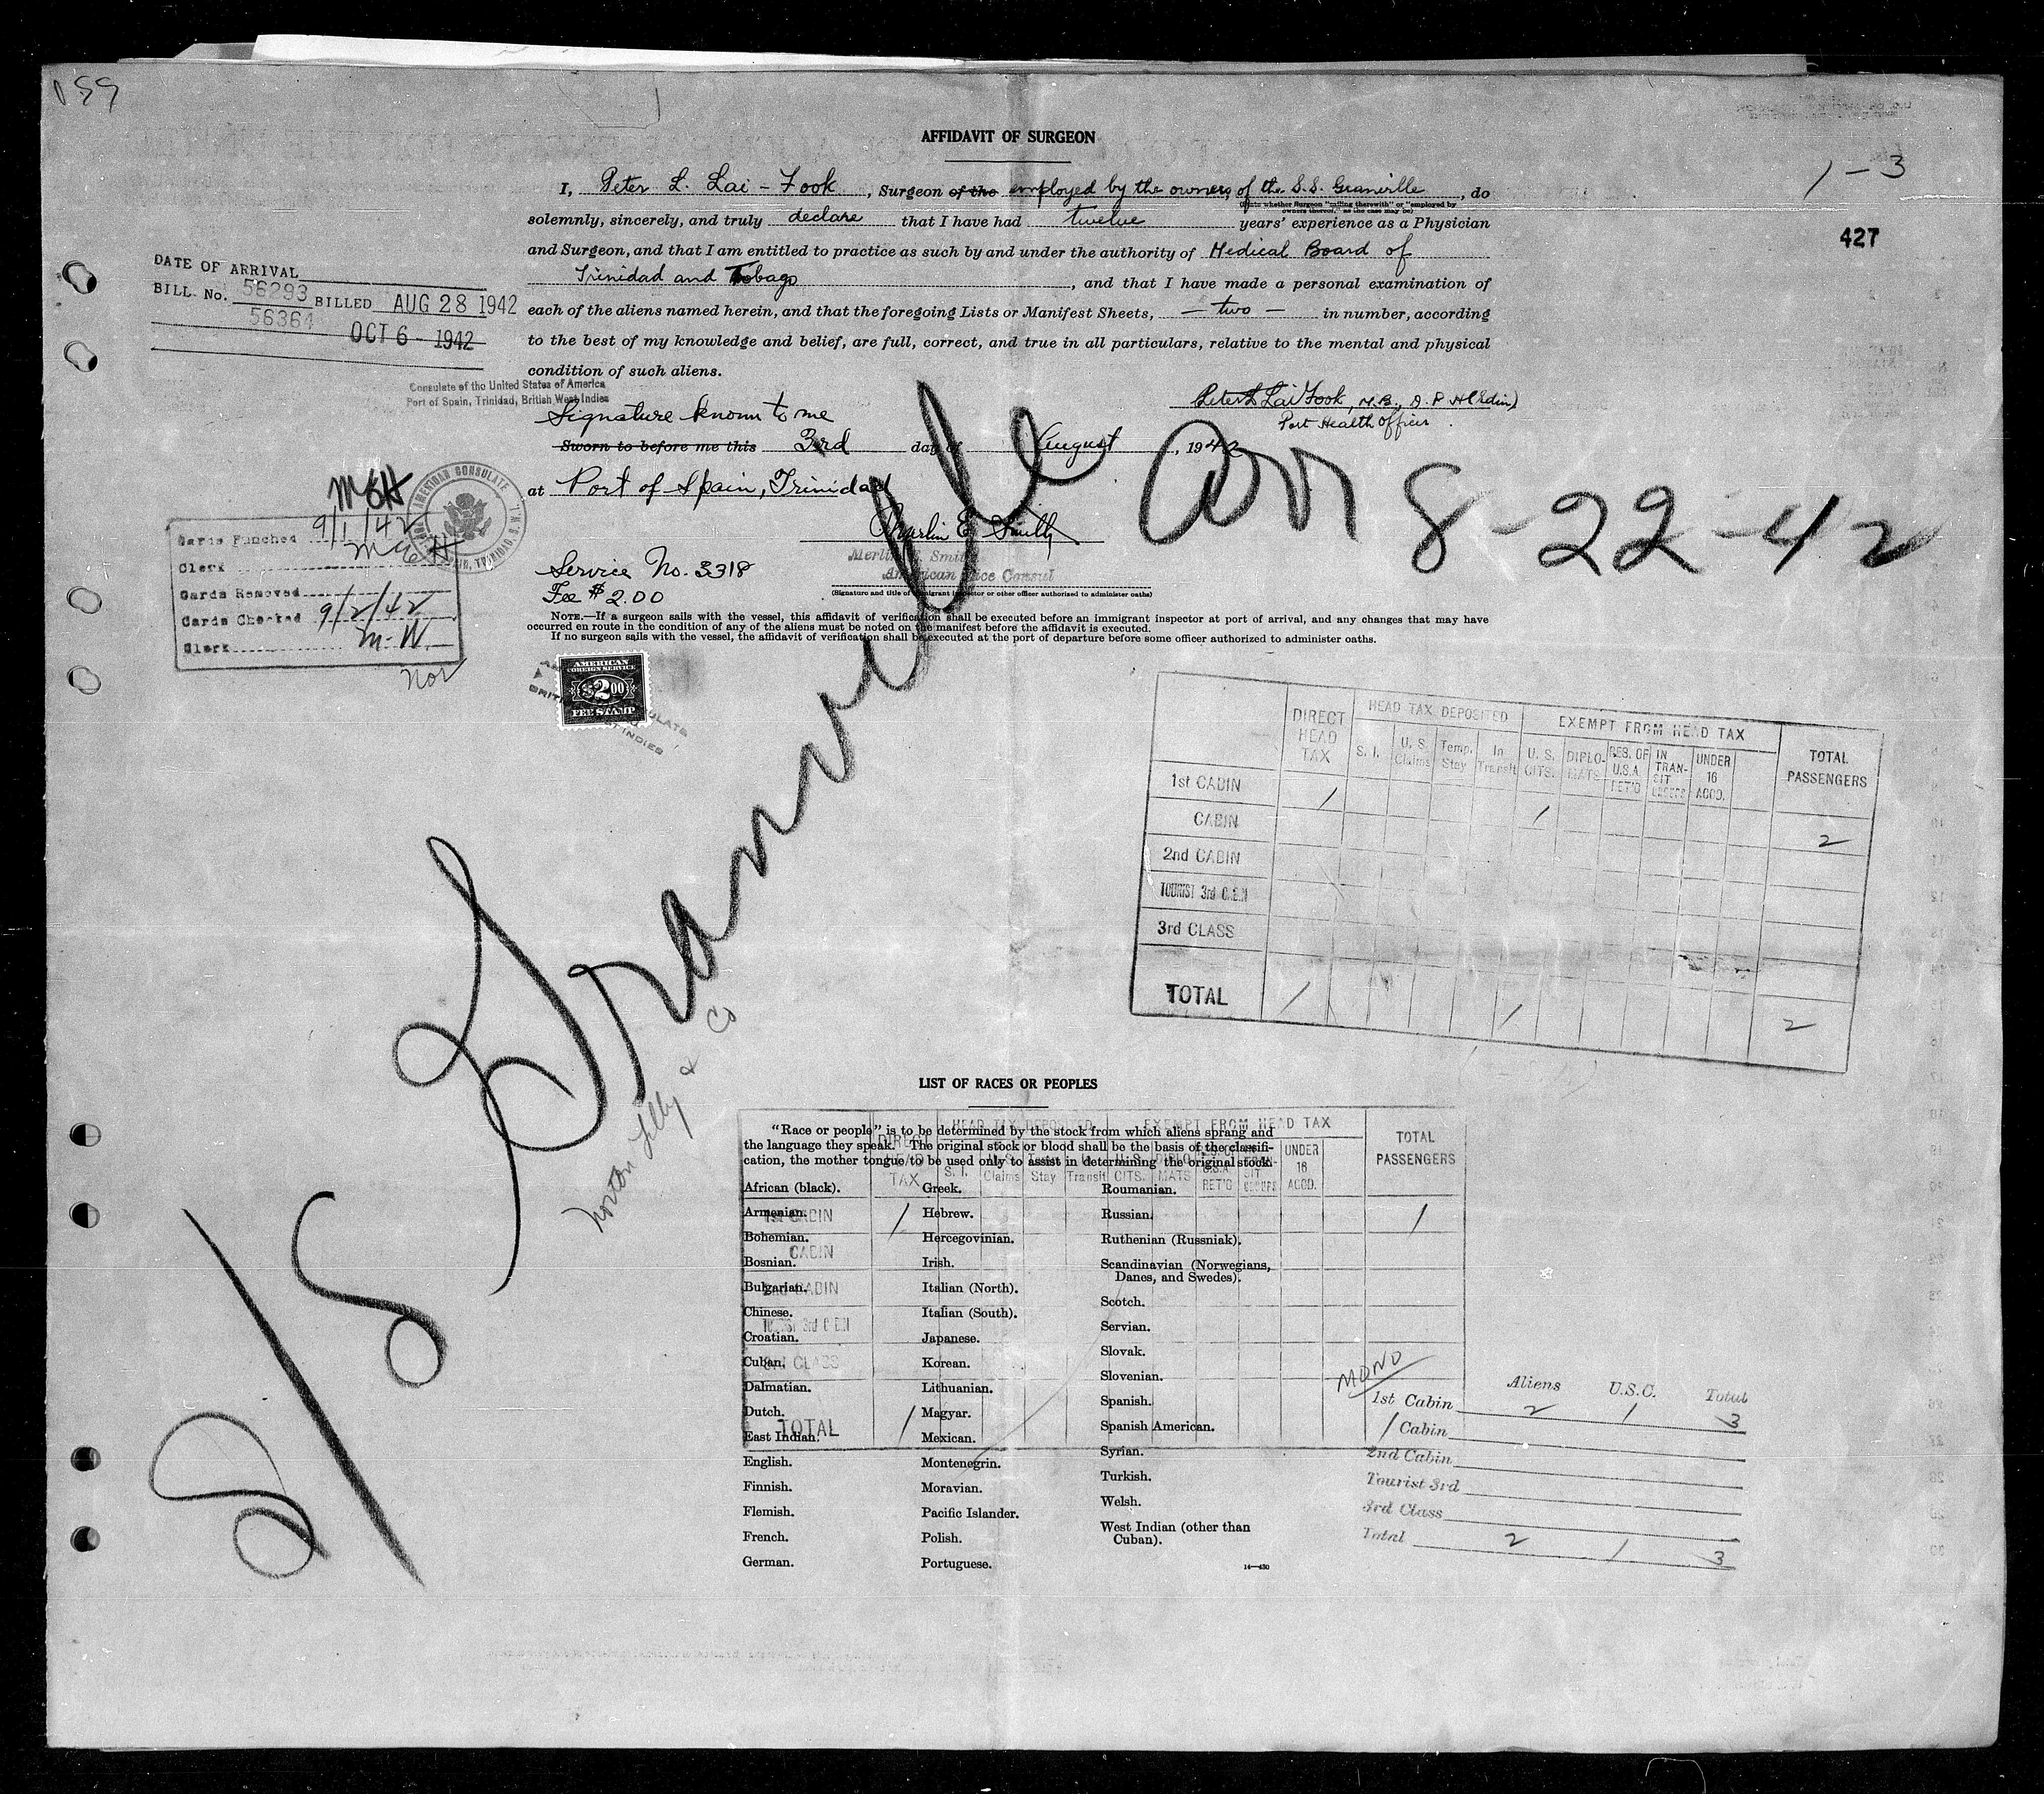 AFFIDAVIT OF SURGEON
1-3
427
I, Peter L. Lai-Fook, Surgeon of the employed by the owners of the S.S. Granville, do
(State whether Surgeon "sailing therewith" or "employed by
owners thereof," as the case may be)
solemnly, sincerely, and truly declare that I have had twelve years' experience as a Physician
and Surgeon, and that I am entitled to practice as such by and under the authority of Medical Board of
Trinidad and Tobago, and that I have made a personal examination of
each of the aliens named herein, and that the foregoing Lists or Manifest Sheets, — two — in number, according
to the best of my knowledge and belief, are full, correct, and true in all particulars, relative to the mental and physical
condition of such aliens.
DATE OF ARRIVAL
BILL. No. 56293 BILLED AUG 28 1942
56364 OCT 6 - 1942
Consulate of the United States of America
Port of Spain, Trinidad, British West Indies
Peter L Lai Fook, M.B.,
Port Health Officer.
Signature known to me
Sworn to before me this 3rd day of August, 1942
at Port of Spain, Trinidad
AMERICAN CONSULATE
Merlin E. Smith
American Vice Consul
(Signature and title of immigrant inspector or other officer authorized to administer oaths)
Service No. 3318
Fee $2.00
Arr 8-22-42
Cards Punched 9/1/42
Clerk
Cards Removed
Cards Checked 9/2/42
Clerk M.W.
Nor
NOTE.—If a surgeon sails with the vessel, this affidavit of verification shall be executed before an immigrant inspector at port of arrival, and any changes that may have
occurred en route in the condition of any of the aliens must be noted on the manifest before the affidavit is executed.
If no surgeon sails with the vessel, the affidavit of verification shall be executed at the port of departure before some officer authorized to administer oaths.
AMERICAN
FOREIGN SERVICE
$2.00
FEE STAMP
S/S Granville
Norton Lilly & Co
DIRECT HEAD TAX HEAD TAX DEPOSITED EXEMPT FROM HEAD TAX TOTAL PASSENGERS
S. I. U. S. Claims Temp. Stay In Transit U. S. CITS. DIPLOMATS RES. OF U.S.A. RET'G IN TRANSIT UNDER 16 ACCD.
1st CABIN 1 1 2
CABIN
2nd CABIN
TOURIST 3rd CABIN
3rd CLASS
TOTAL 1 1 2
LIST OF RACES OR PEOPLES
"Race or people" is to be determined by the stock from which aliens sprang and
the language they speak. The original stock or blood shall be the basis of the classifi-
cation, the mother tongue to be used only to assist in determining the original stock.
HEAD TAX DEPOSITED EXEMPT FROM HEAD TAX TOTAL PASSENGERS
DIRECT HEAD TAX S. I. U. S. Claims Temp. Stay In Transit U. S. CITS. DIPLOMATS U.S.A. RET'G UNDER 16 ACCD.
1st CABIN 1 1
CABIN
2nd CABIN
TOURIST 3rd CABIN
3rd CLASS
TOTAL 1
African (black).
Armenian.
Bohemian.
Bosnian.
Bulgarian.
Chinese.
Croatian.
Cuban.
Dalmatian.
Dutch.
East Indian.
English.
Finnish.
Flemish.
French.
German.
Greek.
Hebrew.
Hercegovinian.
Irish.
Italian (North).
Italian (South).
Japanese.
Korean.
Lithuanian.
Magyar.
Mexican.
Montenegrin.
Moravian.
Pacific Islander.
Polish.
Portuguese.
Roumanian.
Russian.
Ruthenian (Russniak).
Scandinavian (Norwegians,
Danes, and Swedes).
Scotch.
Servian.
Slovak.
Slovenian.
Spanish.
Spanish American.
Syrian.
Turkish.
Welsh.
West Indian (other than
Cuban).
14—430
MONO
Aliens U.S.C. Total
1st Cabin 2 1 3
Cabin
2nd Cabin
Tourist 3rd
3rd Class
Total 2 1 3